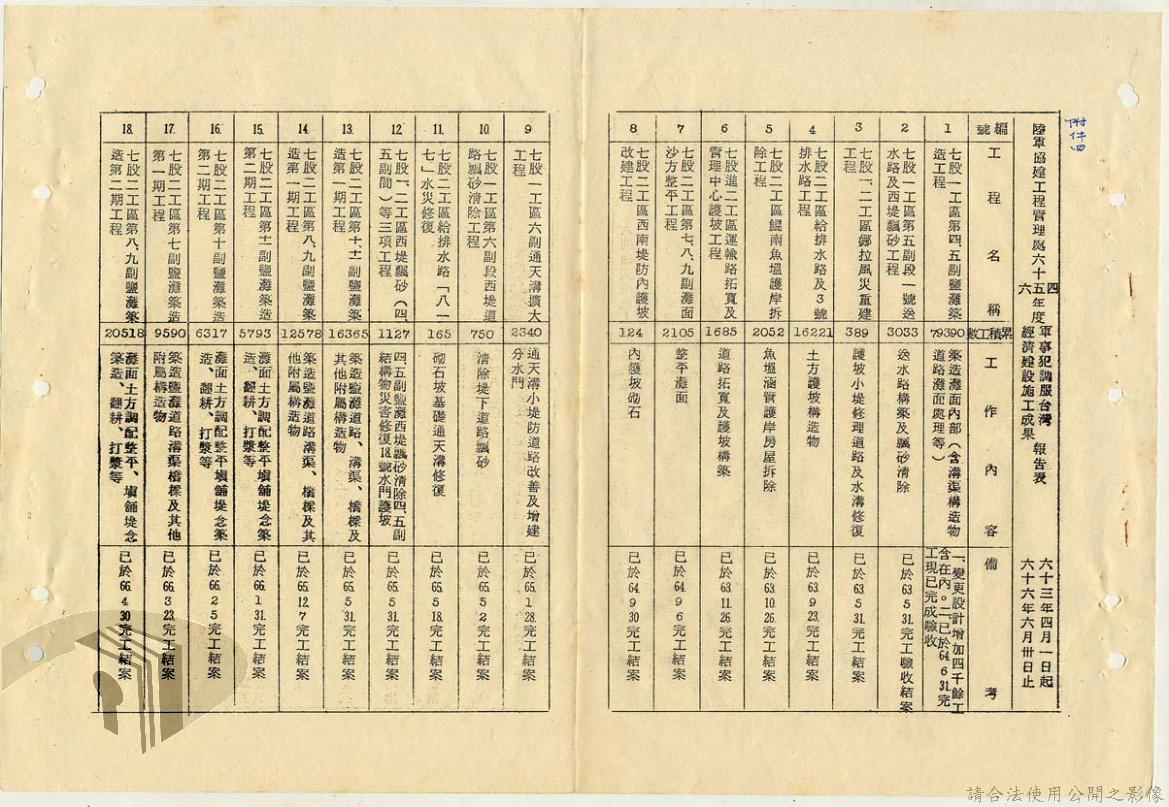 附件四
陸軍協建工程管理處六十四五六年度軍事犯調服台灣經濟建設施工成果報告表
六十三年四月一日起
六十六年六月卅日止
編號
工程名稱
累積工數
工作內容
備考
1
七股一工區第四、五副鹽灘築
造工程
79390
築造灘面內部（含溝渠構造物
道路灘面處理等）
一、變更設計增加四千餘工
含在內。二、已於64.6.31.完
工現已完成驗收
2
七股一工區第五副段一號送
水路及西堤飄砂工程
3033
送水路構築及飄砂清除
已於63.5.31.完工驗收結案
3
七股一、二工區娜拉風災重建
工程
389
護坡小堤修理道路及水溝修復
已於63.5.31.完工結案
4
七股二工區給排水路及3號
排水路工程
16221
土方護坡構造物
已於63.9.23.完工結案
5
七股二工區鯤南魚塭護岸拆
除工程
2052
魚塭涵管護岸房屋拆除
已於63.10.26.完工結案
6
七股進二工區運輸路拓寬及
管理中心護坡工程
1685
道路拓寬及護坡構築
已於63.11.26.完工結案
7
七股二工區第七、八、九副灘面
沙方整平工程
2105
整平灘面
已於64.9.6.完工結案
8
七股二工區西南堤防內護坡
改建工程
124
內護坡砌石
已於64.9.30.完工結案
9
七股一工區六副通天溝擴大
工程
2340
通天溝小堤防道路改善及增建
分水門
已於65.1.28.完工結案
10.
七股一工區第六副段西堤道
路飄砂清除工程
750
清除堤下道路飄砂
已於65.5.2.完工結案
11.
七股二工區給排水路「八一
七」水災修復
165
砌石坡基礎通天溝修復
已於65.5.18.完工結案
12.
七股一、二工區西堤飄砂（四、
五副間）等三項工程
1127
四、五副鹽灘西堤飄砂清除四、五副
結構物災害修復18.號水門護坡
已於65.5.31.完工結案
13.
七股二工區第十、十一副鹽灘築
造第一期工程
16365
築造鹽灘道路、溝渠、橋樑及
其他附屬構造物
已於65.5.31.完工結案
14.
七股二工區第八、九副鹽灘築
造第一期工程
12578
築造鹽灘道路溝渠、橋樑及其
他附屬構造物
已於65.12.7.完工結案
15.
七股二工區第十二副鹽灘築造
第二期工程
5793
灘面土方調配整平填舖堤念築
造、翻耕、打漿等
已於66.1.31.完工結案
16.
七股二工區第十副鹽灘築造
第二期工程
6317
灘面土方調配整平填舖堤念築
造、翻耕、打漿等
已於66.2.5.完工結案
17.
七股二工區第七副鹽灘築造
第一期工程
9590
築造鹽灘道路溝渠橋樑及其他
附屬構造物
已於66.3.23.完工結案
18.
七股二工區第八、九副鹽灘築
造第二期工程
20518
灘面土方調配整平、填舖堤念
築造、翻耕、打漿等
已於66.4.30.完工結案
請合法使用公開之影像